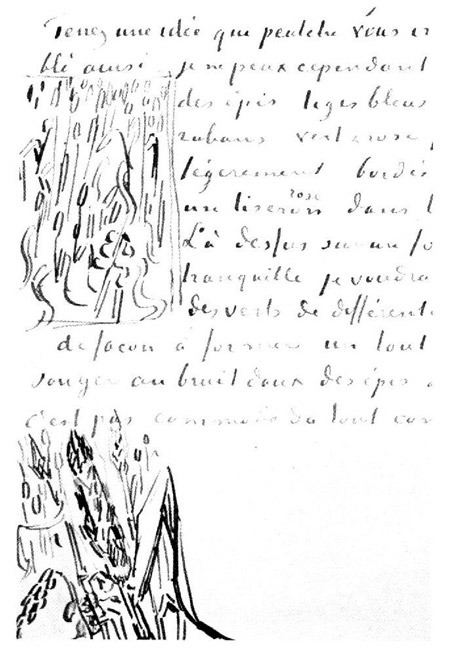 Tenez une idée que peutetre vous in
blé ainsi je ne peux cependant
des épis tiges bleus
rubans vert & rose
légèrement bordés
un liseron rose dans l
Là dessus sur un fo
tranquille je voudra
des verts de différente
de façon à former un tout
songer au bruit doux des épis
c'est pas commode du tout com